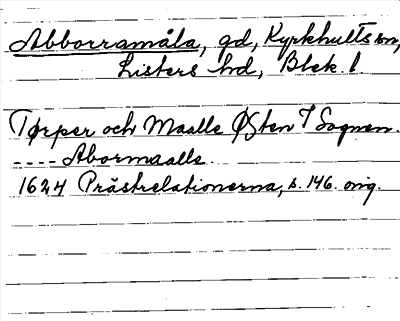 Abborramåla, gd, Kyrkhults sn,
Listers hd, Blek. l
Tørper och Maalle Østen I Sognen.
---- Abormaalle.
1624 Prästrelationerna, s. 146. orig.